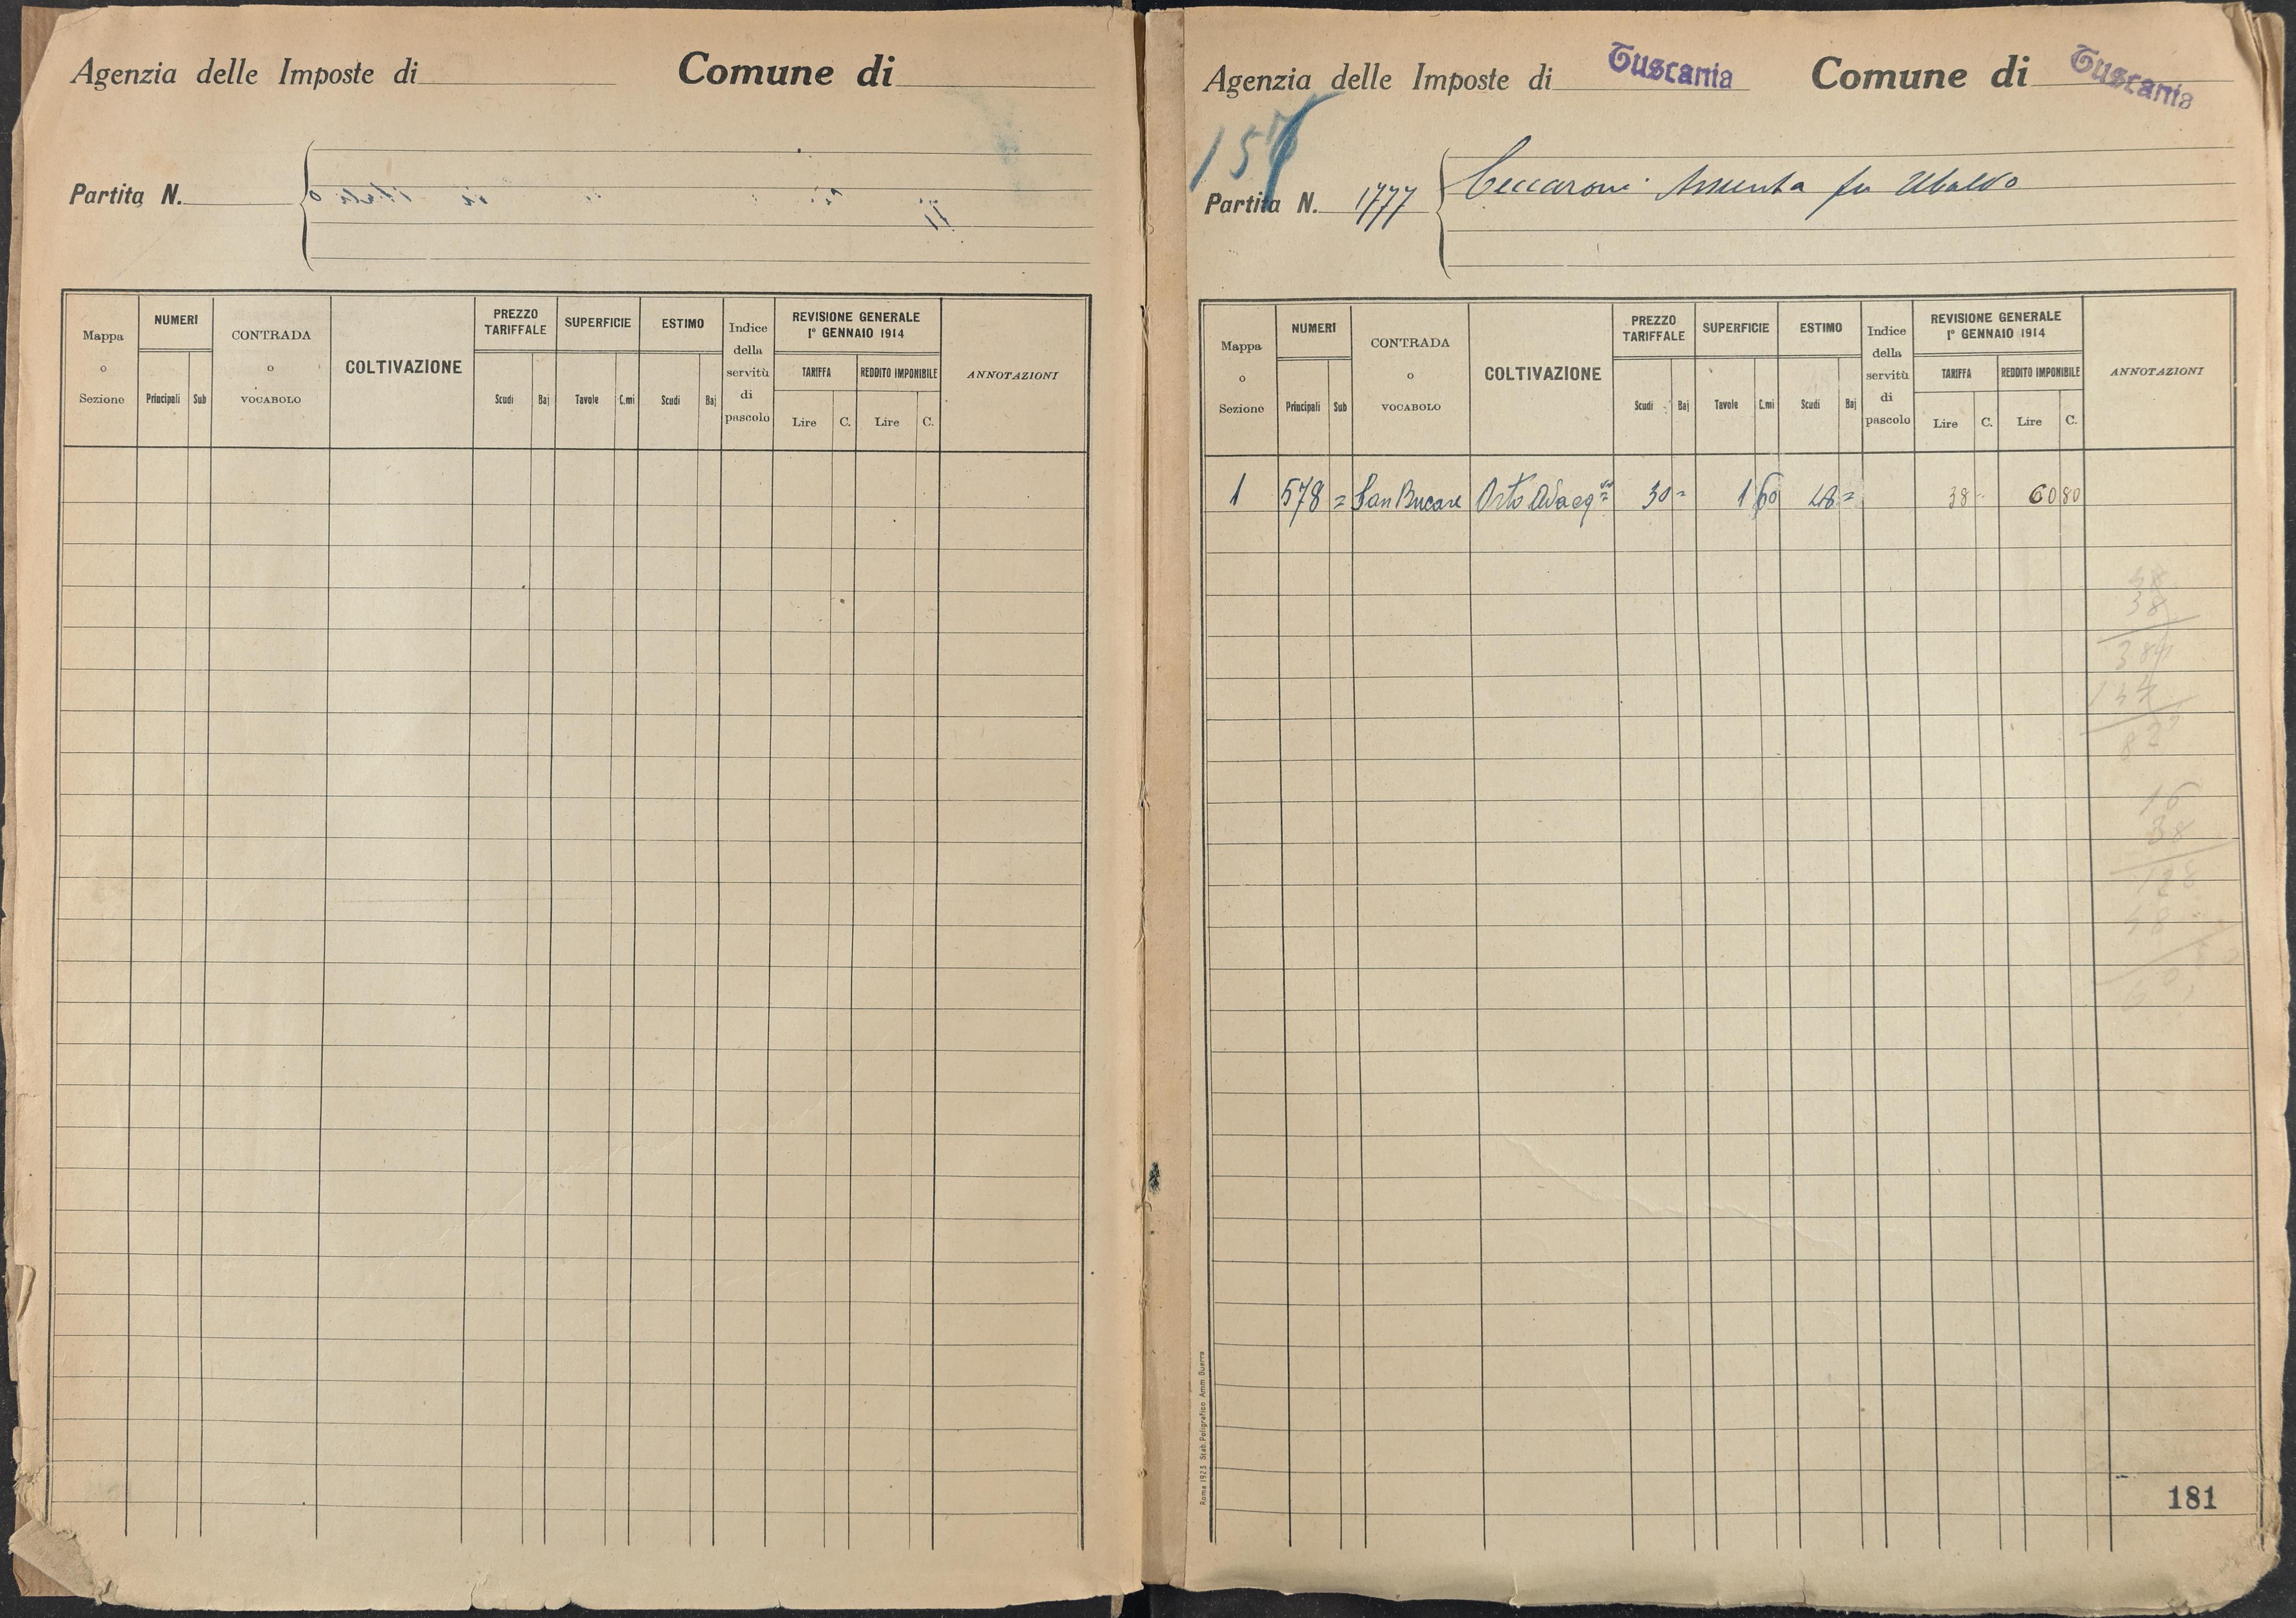 Agenzia delle Imposte di
Comune di
Partita N.
Mappa o Sezione
NUMERI
Principali
Sub
CONTRADA o VOCABOLO
COLTIVAZIONE
PREZZO TARIFFALE
Scudi
Baj
SUPERFICIE
Tavole
C.mi
ESTIMO
Scudi
Baj
Indice della servitù di pascolo
REVISIONE GENERALE 1° GENNAIO 1914
TARIFFA
Lire
C.
REDDITO IMPONIBILE
Lire
C.
ANNOTAZIONI
Agenzia delle Imposte di Tuscania
Comune di Tuscania
Partita N. 1777
Ceccaroni Assunta fu Ubaldo
Mappa o Sezione
NUMERI
Principali
Sub
CONTRADA o VOCABOLO
COLTIVAZIONE
PREZZO TARIFFALE
Scudi
Baj
SUPERFICIE
Tavole
C.mi
ESTIMO
Scudi
Baj
Indice della servitù di pascolo
REVISIONE GENERALE 1° GENNAIO 1914
TARIFFA
Lire
C.
REDDITO IMPONIBILE
Lire
C.
ANNOTAZIONI
1 578 = San Orto Adacq 30 = 1 60 48 = 38 - 60 80
38
16
38
128
48
Roma 1923 Stab. Poligrafico Amm Guerra
181